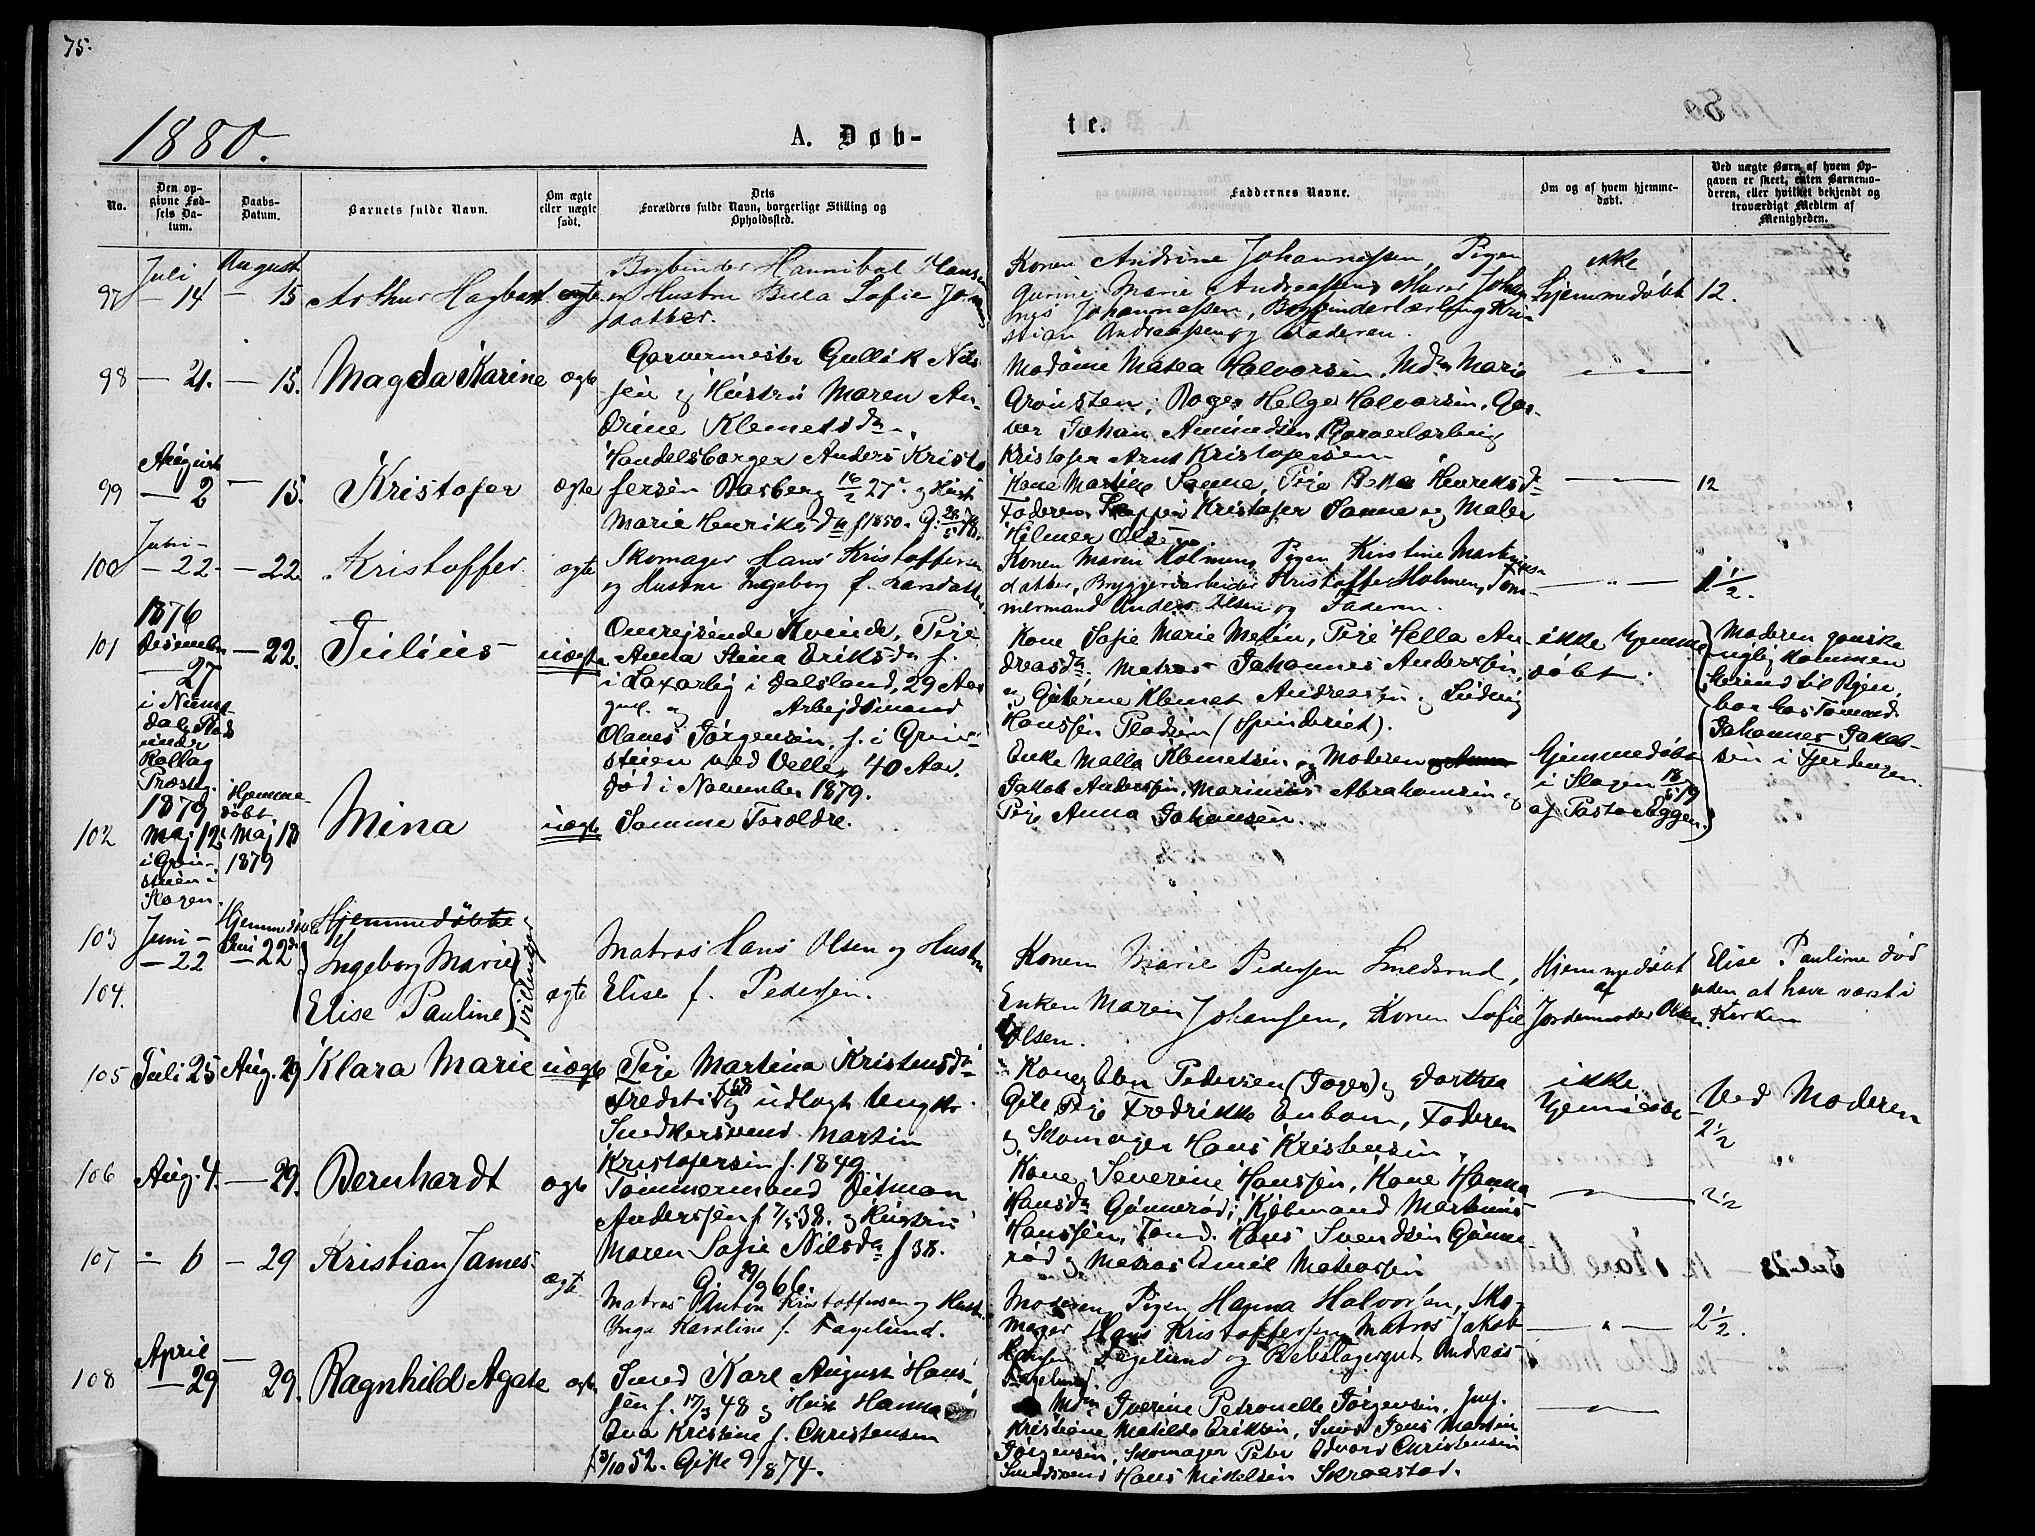 75.
1880.
A. Døb-
te.
No.
Den op-
givne Fød-
sels Da-
tum.
Daabs-
Datum.
Barnets fulde Navn.
Om ægte
eller uægte
født.
Dets
Forældres fulde Navn, borgerlige Stilling og
Opholdssted.
Faddernes Navne.
Om og af hvem hjemme-
døbt.
Ved uægte Børn af hvem Op-
gaven er skeet, enten Barnemo-
deren, eller hvilket bekjendt og
troværdigt Medlem af
Menigheden.
97
Juli
— 14
August
— 15
Arthur Hagbart
ægte
Bogbinder Hannibal Hansen
og Hustru Bella Sofie Jörns
datter.
Konen Andrine Johannessen, Pigen
Gurine Marie Andreassen, Murer Johan
nes Johannessen, Bogbinderlærling Kri-
stian Andreassen og Faderen.
ikke
hjemmedøbt
12.
98
— 21.
— 15.
Magda Karine
ægte
Garvermester Gulløk Nils-
sen og Hustru Maren An-
drine Klemetsdr.
Madame Matea Halvorsen, Mdm Marie
Grønsten, Bager Helge Halvorsen, Gar-
ver Johan Amundsen, Garverlærling
Kristofer Arnt Kristofersen
— " —
99
August
— 2
— 15.
Kristofer
ægte
Handelsborger Anders Kristo
fersen Aasberg 16/2 27. og Hust
Marie Henriksdr f 1850. G: 28/5 78.
Kone Martine Sanne, Pige Henriksdr
Faderen, Kristofer Sanne og Maler
Hilmer Olsen
12
100
Juni -
— 22
— 22
Kristoffer
ægte
Skomager Hans Kristoffersen
og Hustru Ingeborg f. Larsdatter
Konen Maren Holmen, Pigen Kirstine Martins
datter, Bryggeriarbeider Kristoffer Holmen, Töm-
mermand Anders Olsen og Faderen.
— " —
1 1/2.
101
1876
Desember
— 27
i Num-
dal, Stads
under
Rollag
Præstg.
— 22.
Julius
uægte
Omreisende Kvinde, Pige
Anna Stina Eriksdr f.
i Laxarby i Dalsland, 29 Aar
gml. og Arbejdsmand
Olaves Jörgensen, f. i Grøn-
stien ved Velle, 40 Aar.
död i November 1879.
Kone Sofie Marie Melin, Pige Hella An
dreasdr. Matros Johannes Anderssen,
og Gutterne Klemet Andreassen og Ludvig
Hanssen Pladsen (Spinderiet).
ikke hjemme
døbt.
Moderen ganske
nylig kommen
herind til Byen,
bor hos Tømmd.
Johannes Jakob-
sen i Fjerdingen.
102
1879
Maj 12.
i Grøn-
stien i
Slagen.
Hjemme-
døbt.
Maj 18
1879
Mina
uægte
Samme Forældre.
Enke Malla Klemetsen og Moderen
Jakob Anderssen, Marinius Abrahamsen og
Pige Anna Johansen.
Hjemmedøbt
i Slagen 18/5 79
af Pastor Eggen.
103
104.
Juni -
— 22
Hjemmedøbt
Juni
— 22d.
Hjemmedøbte
Ingeborg Marie
Elise Pauline
Tvillinger
ægte
Matros Hans Olsen og Hustru
Elise f. Pedersen.
Konen Marie Pedersen Smedsrud,
Enken Maren Johansen, Konen Sofie
Olsen.
Hjemmedøbt
af
Jordemoder Olsen.
Elise Pauline död
uden at have været i
Kirken
105
Juli 25
Aug. 29
Klara Marie
uægte
Pige Martina Kristensdr
Fredsti og udlagt Ungkr
Snedkersvend Martin
Kristofersen f. 1849.
Kone Eben Pedersen (Jager) og Dorthea
Gile Pige Fredrikke Enbom, Faderen
og Skomager Hans Kristensen.
ikke
hjemmedøbt
Ved Moderen
2 1/2
106
Aug. 4.
— 29.
Bernhardt
ægte
Tømmermand Ditman
Anderssen f 7/5 38. og Hustru
Maren Sofie Nilsdr f 38.
G. 29/9 66.
Kone Severine Hanssen, Kone Hanna
Hansdr Gunnerød, Kjøbmand Martinius
Hanssen, Tømd. Hans Svendsen Gunne-
rød og Matros Emil Mathiassen
2 1/2
107
- 6
- 29
Kristian James
ægte
Matros Anton Kristoffersen og Hustru
Inga Karoline f. Fagelund.
Moderen, Pigen Hanna Halvorsen, Sko-
mager Hans Kristoffersen, Matros Jakob
Hansen Fagelund og Rebslagergut Andreas
Fagelund.
— " —
2 1/2.
108
April
— 29
—
29.
Ragnhild Agate
ægte
Smed Karl August Hans-
sen f. 17/3 48 og Hust Hanna
Eva Kristine f. Christensen
f 3/10 52. Gifte 9/8 74.
Mdm Iverine Petronelle Jörgensen, Jmf.
Kristiane Matilde Eriksen, Smed Jens Martin
Jörgensen, Skomager Peter Edvard Christensen
Smedsvend Hans Mikkelsen Skraastad.